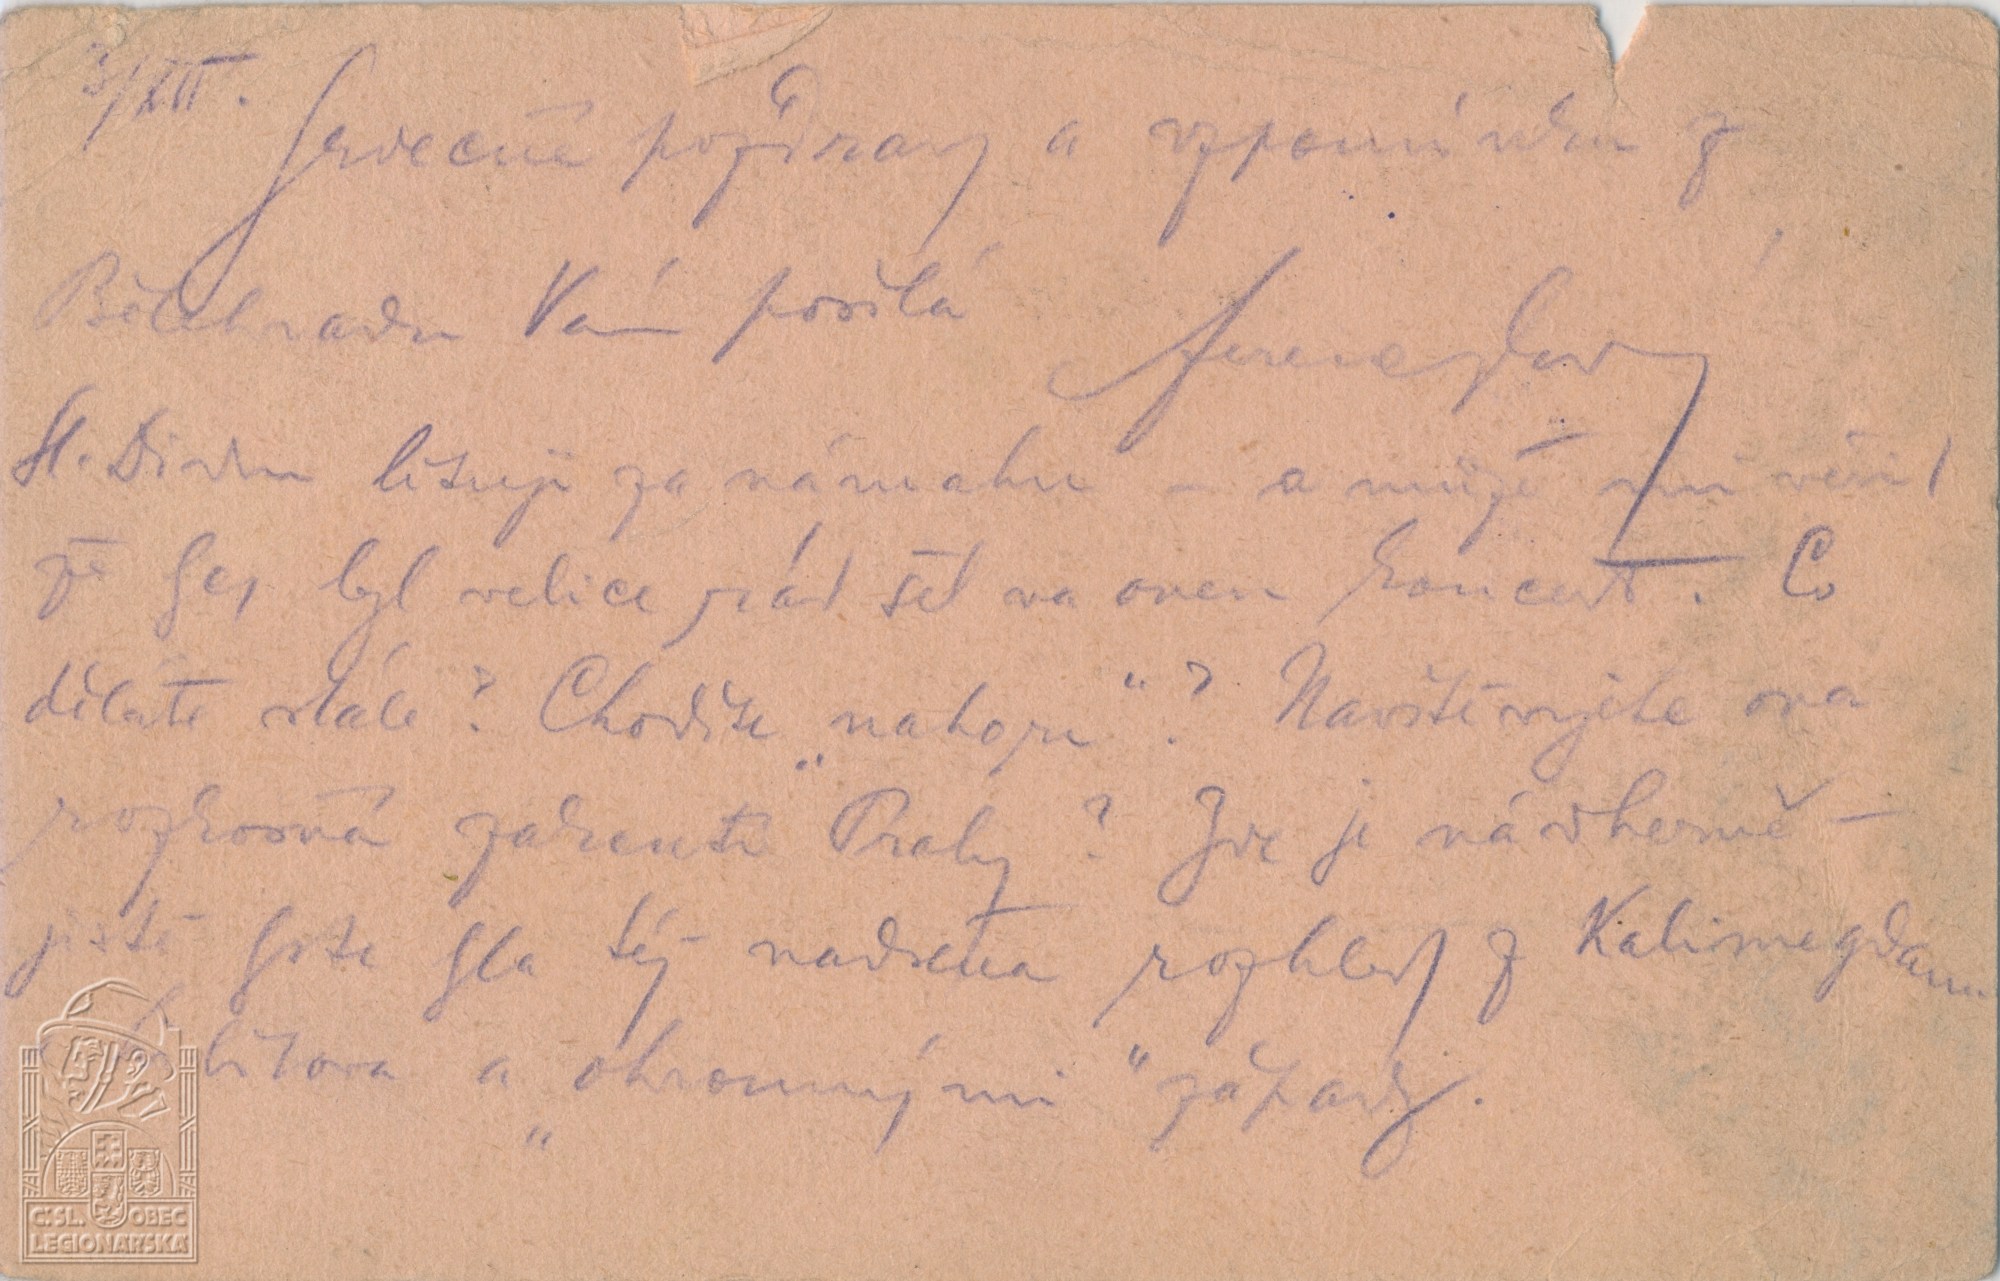 3/XII.
Srdečné pozdravy a vzpomínku z
Bělehradu Vám posílá
Sl. Divku lituji za námahu – a může mi věřit
že bych byl velice rád šel na onen koncert. Co
děláte stále? Chodíte „nahoru"? Navštěvujete ona
rozkošná zákoutí Prahy? Zde je nádherně –
jistě byste byla též nadšena rozhledy z Kalimegdanu
a „ohromnými" západy.
ČSL. OBEC
LEGIONÁŘSKÁ